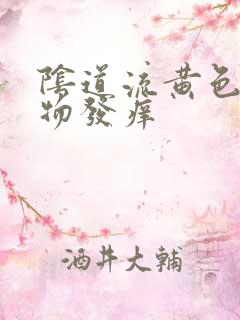 陰道流黃色
物發痒
酒井大輔